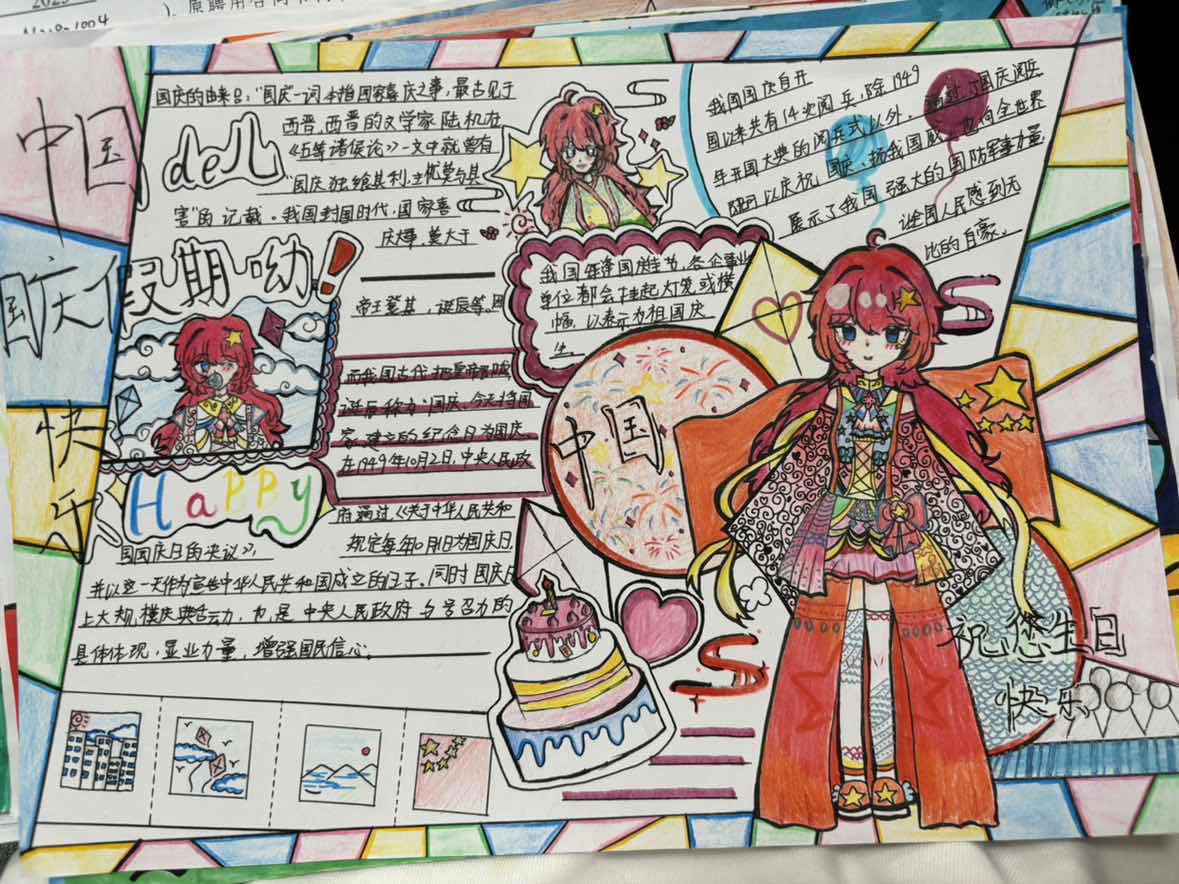 中国
de儿
国庆假期呦!
快乐
国庆的由来是:“国庆”一词本指国家喜庆之事,最古见于
西晋,西晋的文学家陆机在
《五等诸侯论》一文中就曾有
“国庆独飨其利,主忧莫与其
害”的记载。我国封国时代,国家喜
庆大事,莫大于
帝王登基,诞辰等。因
而我国古代把皇帝即位
诞辰称为“国庆,今天将国
家建立的纪念日为国庆
在1949年10月2日,中央人民政
府通过《关于中华人民共和
国国庆日的决议》,
规定每年10月1日为国庆日,
并以这一天作为宣告中华人民共和国成立的日子,同时国庆日
上大规模庆典活动,也是中央人民政府与号召力的
具体体现,显业力量,增强国民信心。
Happy
我国每逢国庆佳节,各企事业
单位都会挂起灯笼或横
幅,以表示为祖国庆
生。
我国国庆自开
国以来共有14次阅兵,除1949
年开国大典的阅兵式以外,国庆阅兵
以庆祝国庆、扬我国威,也向全世界
展示了我国强大的国防军事力量,
让全国人民感到无
比的自豪。
中国
祝您生日
快乐